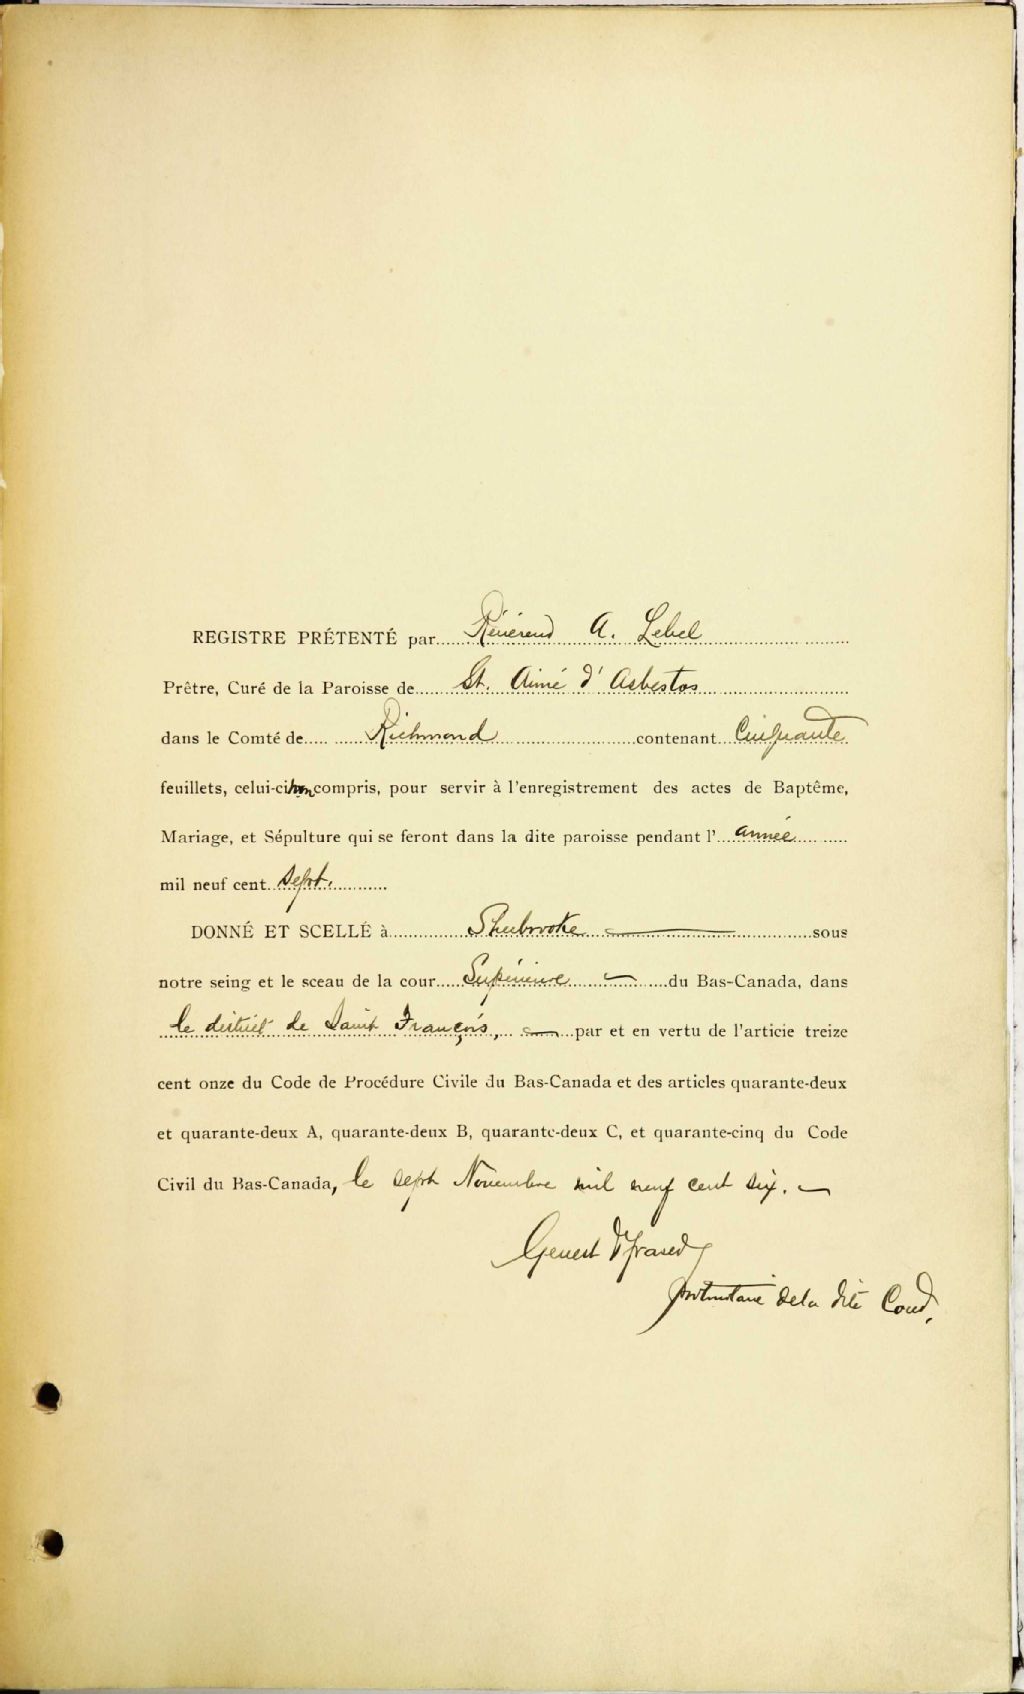 REGISTRE PRÉTENTÉ par Révérend A. Lebel
Prêtre, Curé de la Paroisse de St. Aimé d'Asbestos
dans le Comté de Richmond contenant Cinquante
feuillets, celui-ci non compris, pour servir à l'enregistrement des actes de Baptême,
Mariage, et Sépulture qui se feront dans la dite paroisse pendant l' année
mil neuf cent sept.
DONNÉ ET SCELLÉ à Sherbrooke sous
notre seing et le sceau de la cour Supérieure du Bas-Canada, dans
le district de Saint François, par et en vertu de l'articie treize
cent onze du Code de Procédure Civile du Bas-Canada et des articles quarante-deux
et quarante-deux A, quarante-deux B, quarante-deux C, et quarante-cinq du Code
Civil du Bas-Canada, le sept Novembre mil neuf cent six.
Genest
protonotaire de la dite Cour.